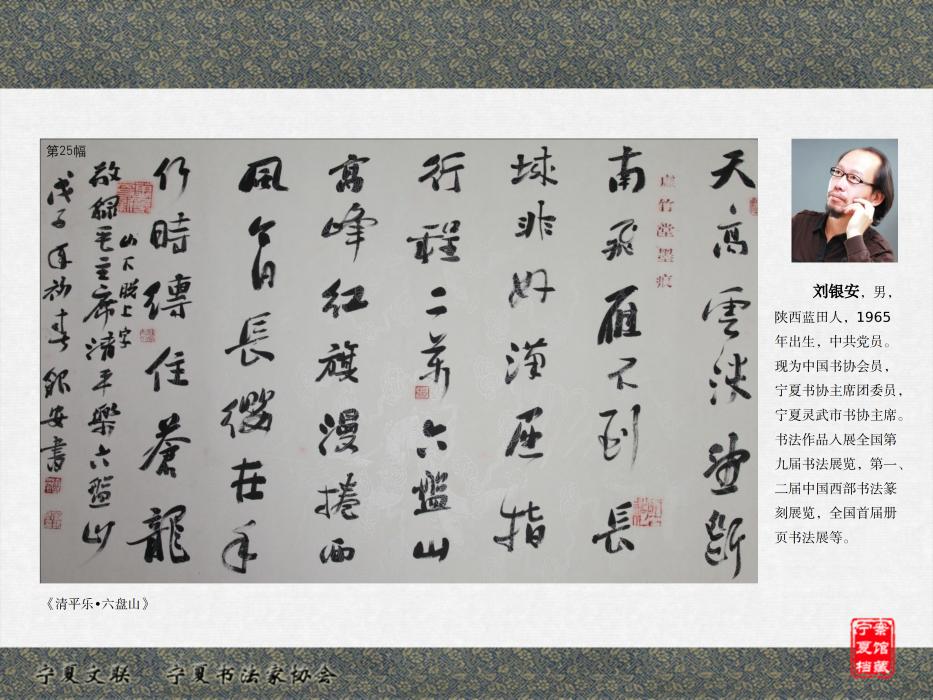 第25幅
天高雲淡望斷
南飛雁不到長
城非好漢屈指
行程二萬六盤山
高峰紅旗漫捲西
風今日長纓在手
何時縛住蒼龍
山下脱上字
敬録毛主席清平樂六盤山
戊子年初春銀安書
虚竹堂墨痕
《清平乐•六盘山》
刘银安，男，
陕西蓝田人，1965
年出生，中共党员。
现为中国书协会员，
宁夏书协主席团委员，
宁夏灵武市书协主席。
书法作品入展全国第
九届书法展览，第一、
二届中国西部书法篆
刻展览，全国首届册
页书法展等。
宁夏文联 宁夏书法家协会
宁夏档
案馆藏